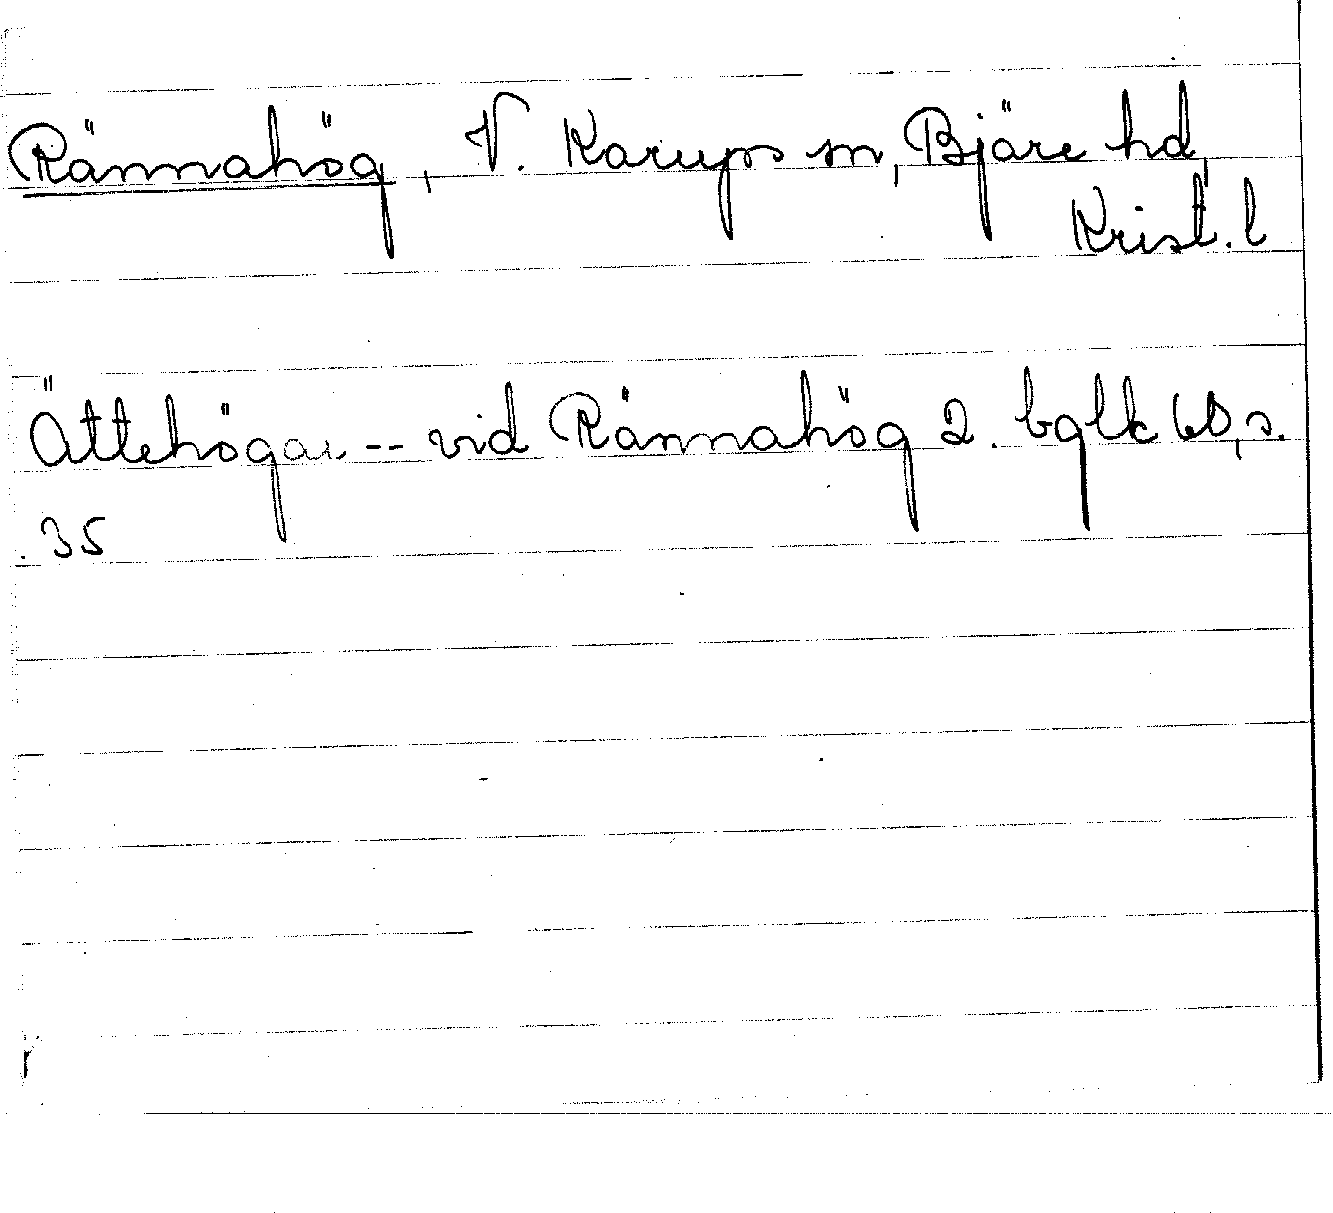 Rännahög, V. Karups sn, Bjäre hd,
Krist. l
Ättehögar -- vid Rännahög 2. bglk 60, s.
35